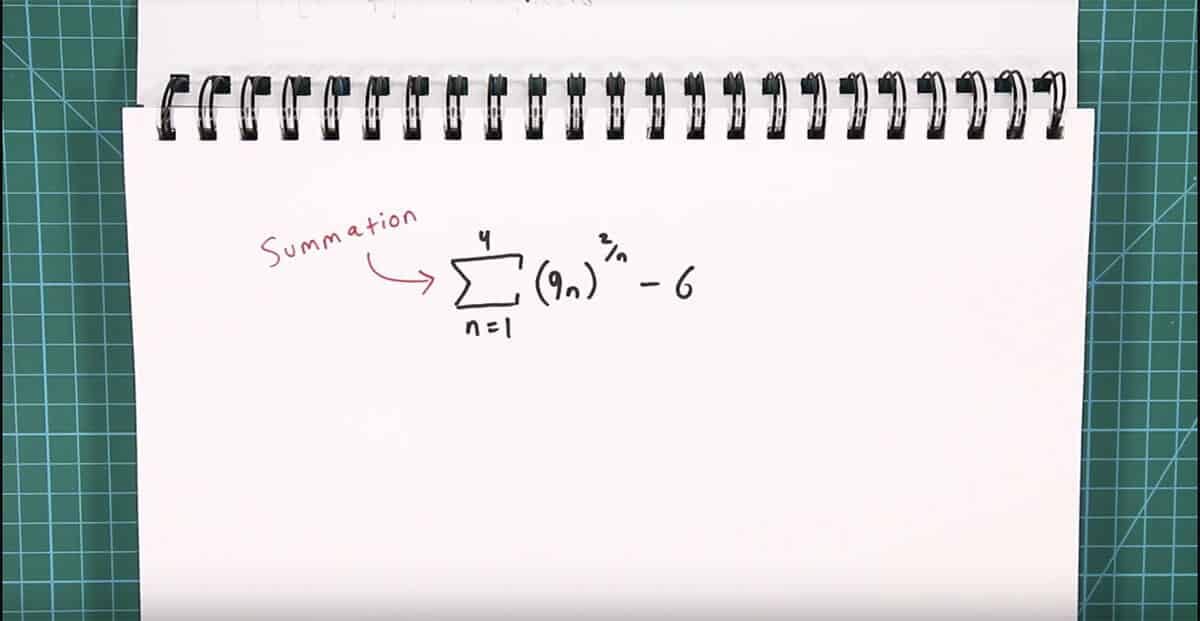 Summation
4
∑ (9n)^2/n − 6
n=1